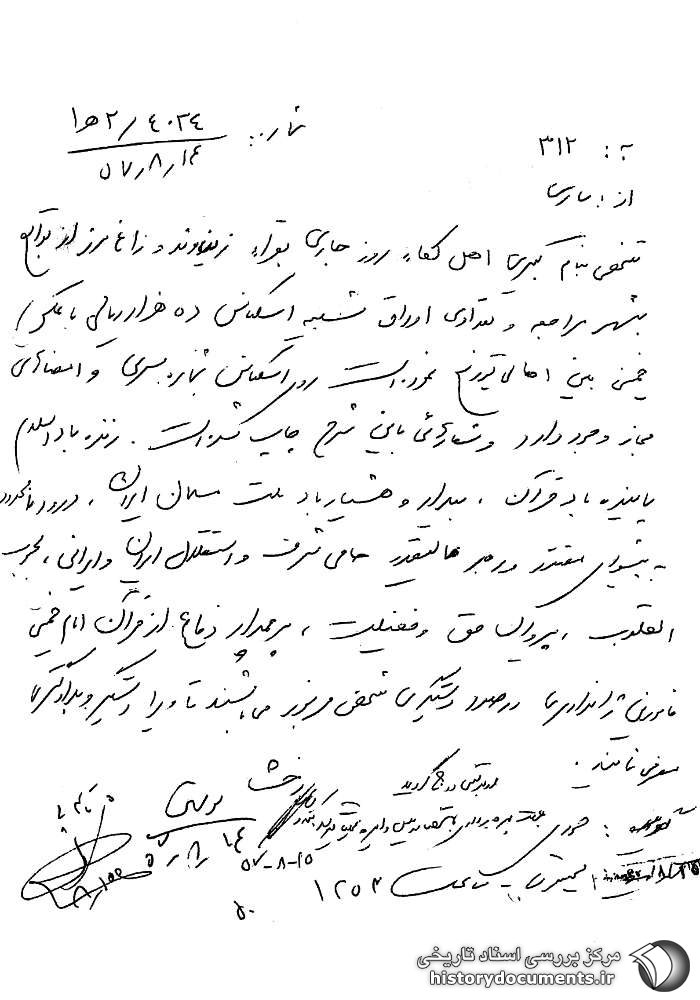 به: ۳۱۲
شماره: ۴۰۲۴/۲ ه‍ ۱
۵۷/۸/۱۴
از: ساری
شخصی بنام کبیری اهل روز جاری بقراء زینوند و زاغمرز از توابع
بهشهر مراجعه و تعدادی اوراق شبیه اسکناس ده هزار ریالی با عکس
خمینی بین اهالی توزیع نموده است روی اسکناس شماره سری و امضائی
مجاز وجود دارد و شعارهائی باین شرح چاپ شده است. زنده باد اسلام
پاینده باد قرآن، بیدار و هشیار باد ملت مسلمان ایران، درود نامحدود
به پیشوای مقتدر و رهبر عالیقدر حامی شرف و استقلال ایران و ایرانی، محبوب
القلوب، پیروان حق و فضیلت، پرچمدار دفاع از قرآن امام خمینی
مامورین ژاندارمری در صدد دستگیری شخص مزبور میباشند تا ویرا دستگیر و بدادگاه
معرفی نمایند.
۵۷/۸/۱۴
۵۷-۸-۱۵
ساعت ۱۲۵۳
مرکز بررسی اسناد تاریخی
historydocuments.ir